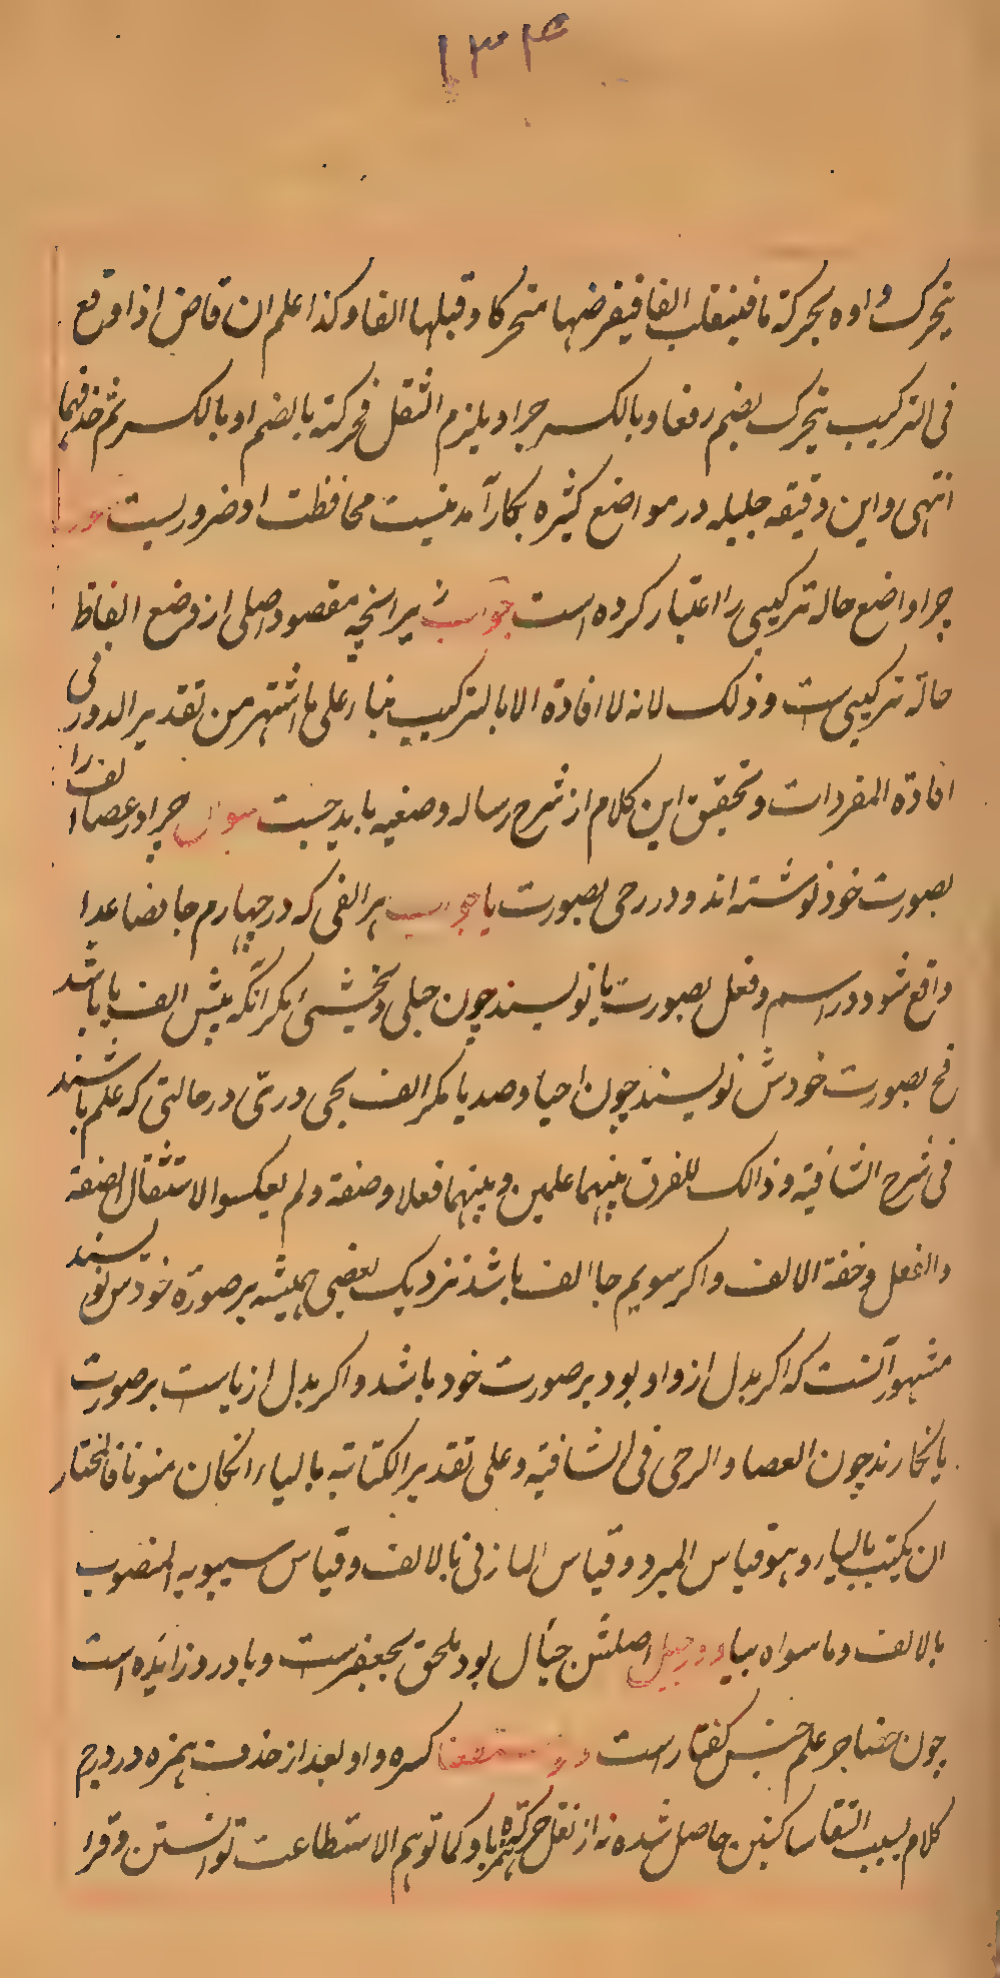 ۱۳۴
یتحرک واوه بحرکة ما فینقلب الفا فیفرضها متحرکا و قبلها الفا و کذا اعلم ان قاض اذا وقع
فی الترکیب یتحرک بضم رفعا و بالکسر جرا و یلزم الثقل فحرکته بالضم او بالکسر ثم حذفهما
انتهی و این دقیقه جلیله در مواضع کثیره بکار آمدنیست محافظت او ضروریست
چرا واضع حاله ترکیبی را اعتبار کرده است جواب زیرا نچه مقصود اصلی از وضع الفاظ
حالة ترکیبی ست و ذلک لانه لا افادة الا بالترکیب بناء علی ما اشتهر من تقدیر الدور فی
افادة المفردات و تحقیق این کلام از شرح رساله وضعیه باید جست سوال چرا در عصا الف را
بصورت خود نوشته اند و در رحی بصورت یا جواب هر الفی که در چهارم جا فصاعدا
واقع شود در اسم و فعل بصورت یا نویسند چون حبلی و یخشی مگر آنکه پیش الف یا باشد
فح بصورت خودش نویسند چون احیا و صدیا مگر الف یحی و ریّی در حالتی که علم باشند
فی شرح الشافیة و ذالک للفرق بینهما علمین و بینهما فعلا و صفة و لم یعکسوا لاستثقال الصفة
و الفعل و خفة الالف و اگر سویم جا الف باشد نزدیک بعضی همیشه بر صورة خودش نویسند
مشهور آنست که اگر بدل از واو بود بر صورت خود باشد و اگر بدل از یاست بر صورت
یا نگارند چون العصا و الرحی فی الشافیة و علی تقدیر الکتابة بالیاء انکان منونا فالمختار
ان یکتب بالیاء و هو قیاس المبرد و قیاس المازنی بالالف و قیاس سیبویه المنصوب
بالالف و ما سواه بیاء و جیل اصلش جیأل بود ملحق بجعفر ست و یا در و زایده است
چون حضاجر علم جنس کفتار است کسره واو بعد از حذف همزه در درج
کلام بسبب التقاء ساکنین حاصل شده نه از نقل حرکة همزه باو کما توهم الاستطاعت توانستن و قرا